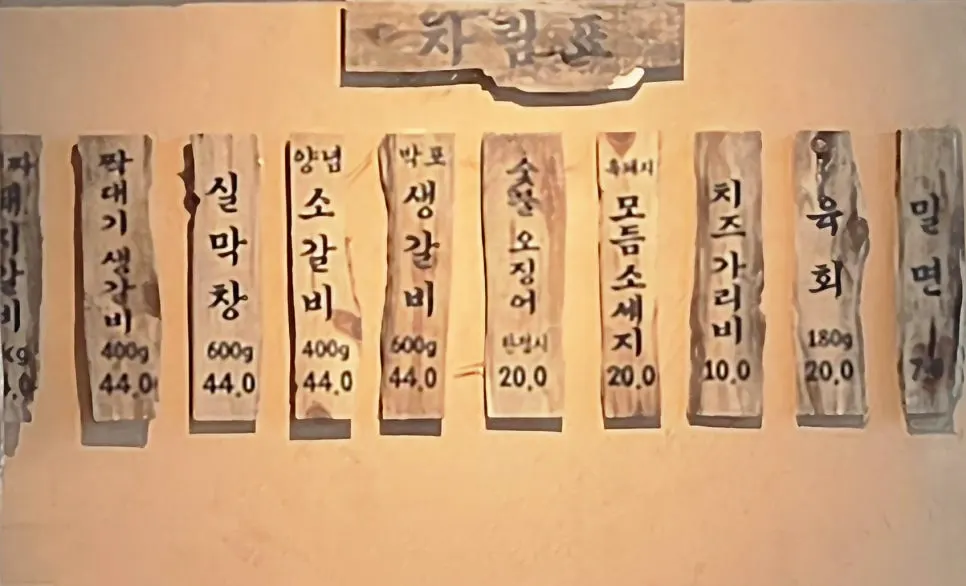 차림표
짝대기 생갈비
400g
44.0
실막창
600g
44.0
양념
소갈비
400g
44.0
박포
생갈비
600g
44.0
숯불 오징어
한접시
20.0
흑돼지
모듬소세지
20.0
치즈가리비
10.0
우육회
180g
20.0
밀면